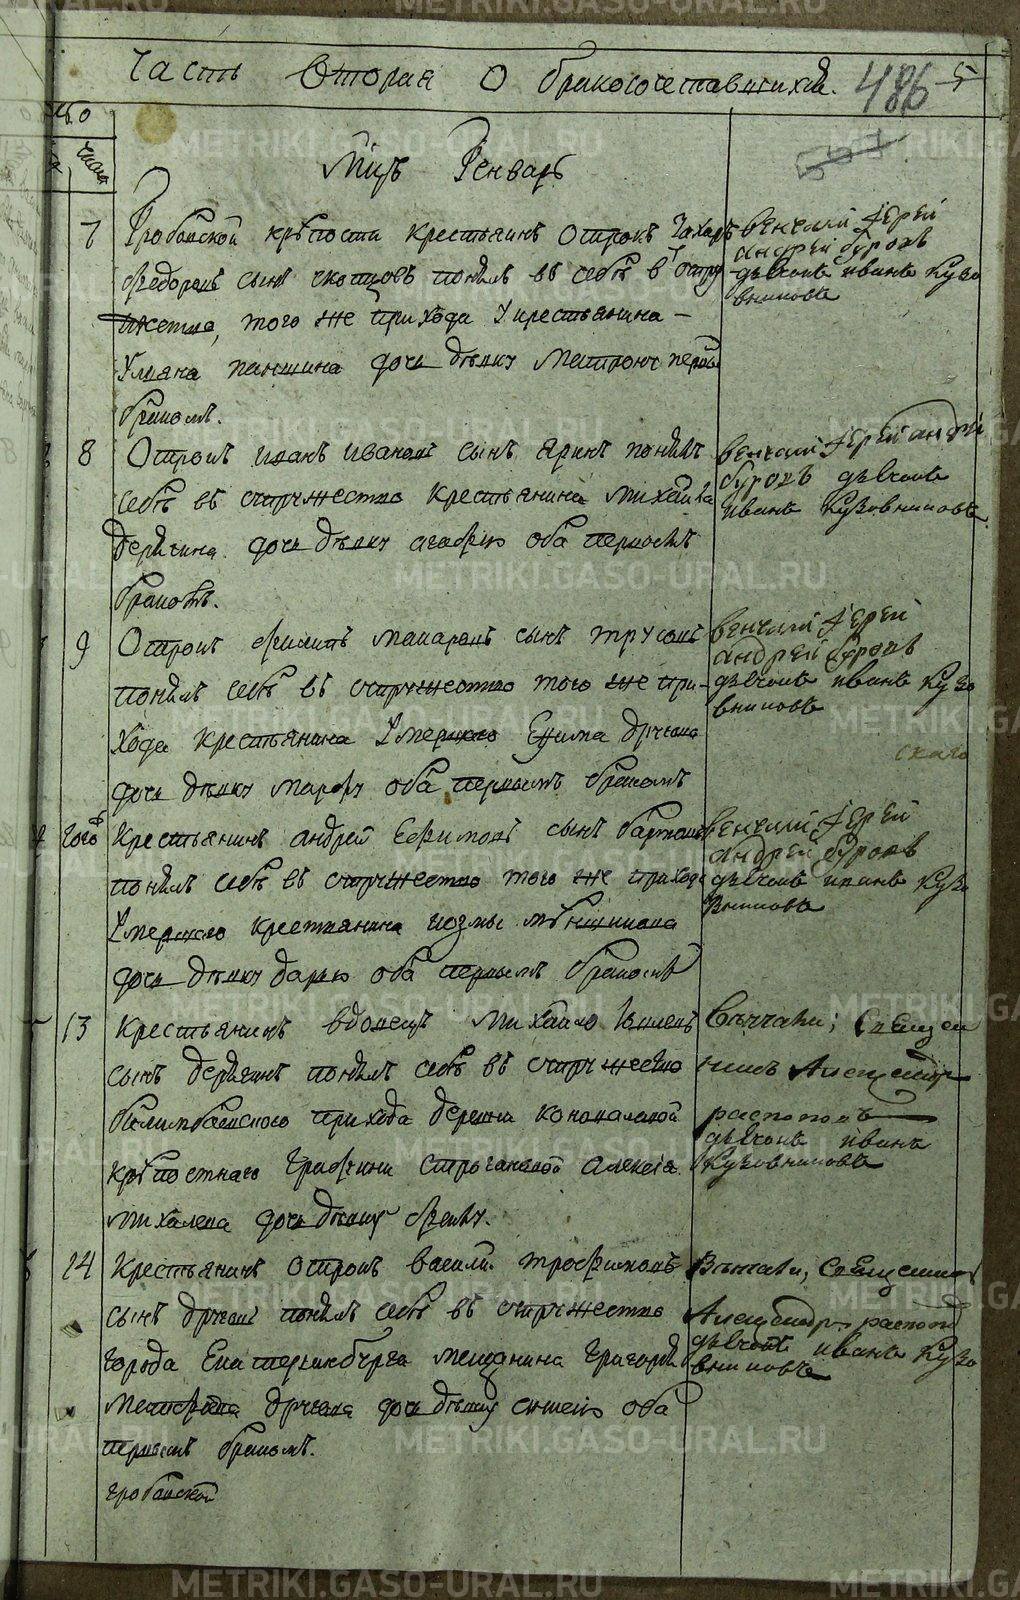 Часть Вторая О бракосочетавшихся. 486 5
числа
Мцъ Генварь
7 Гробовской крѣпости крестьянинъ Отрокъ Захаръ
Федоровъ сынъ понялъ въ себѣ в супру-
жество, того же прихода Умрестьянина -
Ульяна паншина дочь дѣвку Матрону первымъ
бракомъ.
венчалъ Іерей
андрей буровъ
дьячокъ иванъ Кузо
вниковъ
8 Отрокъ иванъ ивановъ сынъ понялъ
себѣ въ супружество крестьянина михаила
дерягина дочь дѣвку агафью оба первымъ
бракомъ.
венчалъ Іерей андрей
буровъ дьячокъ
иванъ Кузовниковъ.
9 Отрокъ филипъ макаровъ сынъ трусовъ
понялъ себѣ въ супружество того же при-
хода крестьянина Умершаго Ефима
дочь дѣвку марфу оба первымъ бракомъ
венчалъ Іерей
андрей буровъ
дьячокъ иванъ Кузо
вниковъ
скаго
тогож Крестьянинъ андрей Ефимовъ сынъ
понялъ себѣ въ супружество того же прихода
Умершаго крестьянина козмы
дочь дѣвку дарью оба первымъ бракомъ
венчалъ Іерей
андрей буровъ
дьячокъ иванъ Кузо
вниковъ
13 Крестьянинъ вдовецъ михайло
сынъ дерягинъ понялъ себѣ въ супружество
билимбаевскаго прихода деревни коноваловой
крѣпостнаго Графини строгановой алексѣя
михалева дочь дѣвку
Вѣнчали; Священ
никъ Александръ
распоповъ
дьячокъ иванъ
Кузовниковъ
14 Крестьянинъ отрокъ василей трофимовъ
сынъ понялъ себѣ въ супружество
города Екатеринбурга мещанина григорья
дочь дѣвку оба
первымъ бракомъ.
гробовской
Вѣнчали, Священникъ
Александръ распопов
дьячокъ иванъ Кузо
вниковъ
METRIKI.GASO-URAL.RU